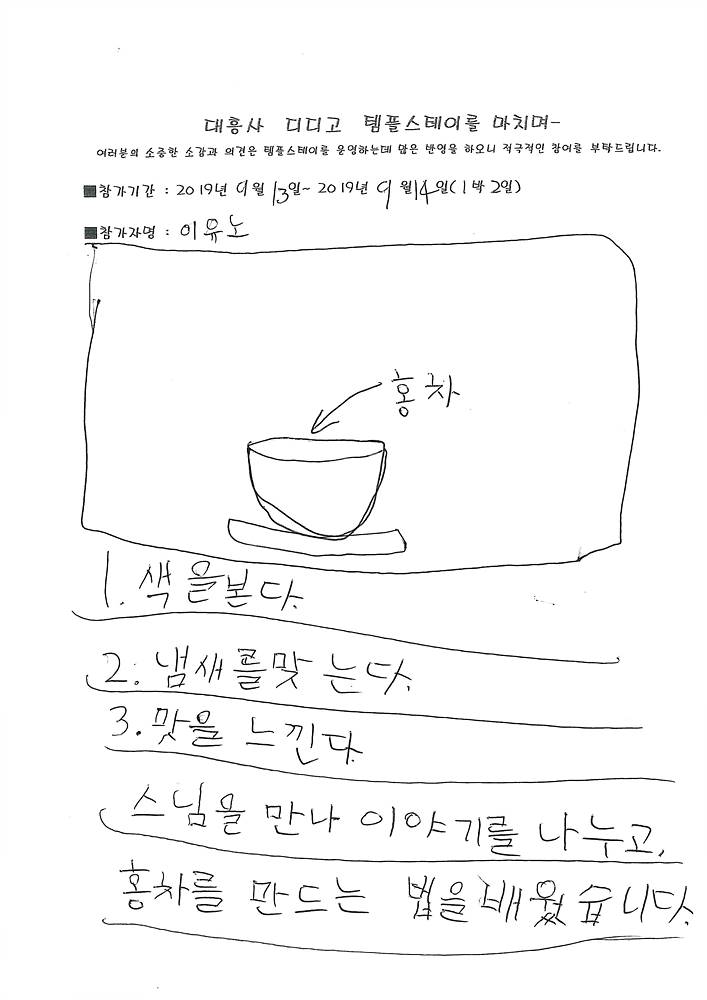 대흥사 디디고 템플스테이를 마치며-
여러분의 소중한 소감과 의견은 템플스테이를 운영하는데 많은 반영을 하오니 적극적인 참여를 부탁드립니다.
■참가기간 : 2019년 9월 13일~ 2019년 9월 14일(1박 2일)
■참가자명 : 이유노
홍차
1. 색을본다.
2. 냄새를맟는다.
3. 맛을 느낀다.
스님을 만나 이야기를 나누고,
홍차를 만드는 법을배웠습니다.